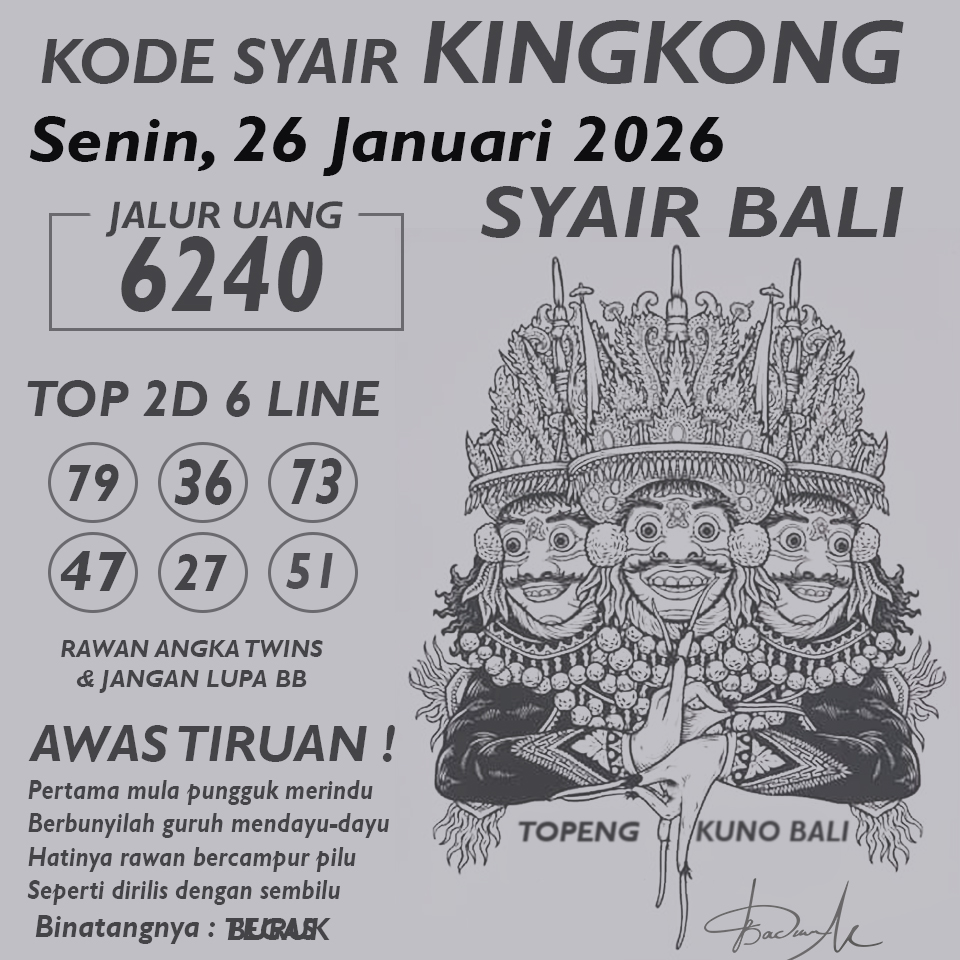 KODE SYAIR KINGKONG
Senin, 26 Januari 2026
JALUR UANG
6240
SYAIR BALI
TOP 2D 6 LINE
79 36 73
47 27 51
RAWAN ANGKA TWINS
& JANGAN LUPA BB
AWAS TIRUAN !
Pertama mula pungguk merindu
Berbunyilah guruh mendayu-dayu
Hatinya rawan bercampur pilu
Seperti dirilis dengan sembilu
Binatangnya :
TOPENG KUNO BALI